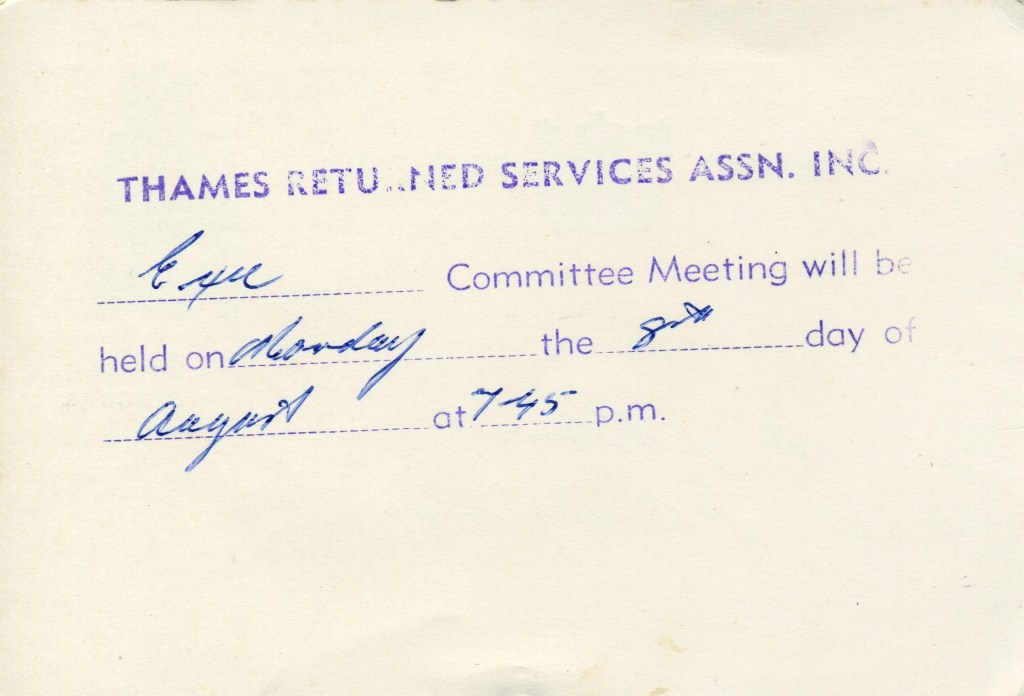 THAMES RETURNED SERVICES ASSN. INC.
Exec Committee Meeting will be
held on Monday the 8th day of
August at 7-45 p.m.